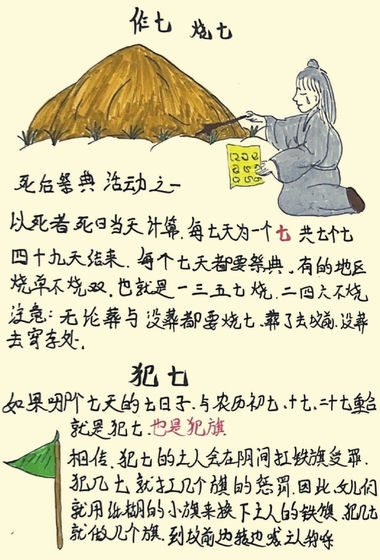 作七 烧七
死后祭典活动之一
以死者死日当天计算,每七天为一个七 共七个七
四十九天结束。每个七天都要祭典。有的地区
烧单不烧双,也就是一三五七烧,二四六不烧
注意:无论葬与没葬都要烧七,葬了去坟前,没葬
去穿
犯七
如果哪个七天的七日子、与农历初七、十七、二十七重合
就是犯七,也是犯旗
相信,犯七的亡人会在阴间扛铁旗受罪
犯几七,就扛几个旗的惩罚,因此,女儿们
就用纸糊的小旗来换下亡人的铁旗,犯几七
就做几个旗,到坟前边转边